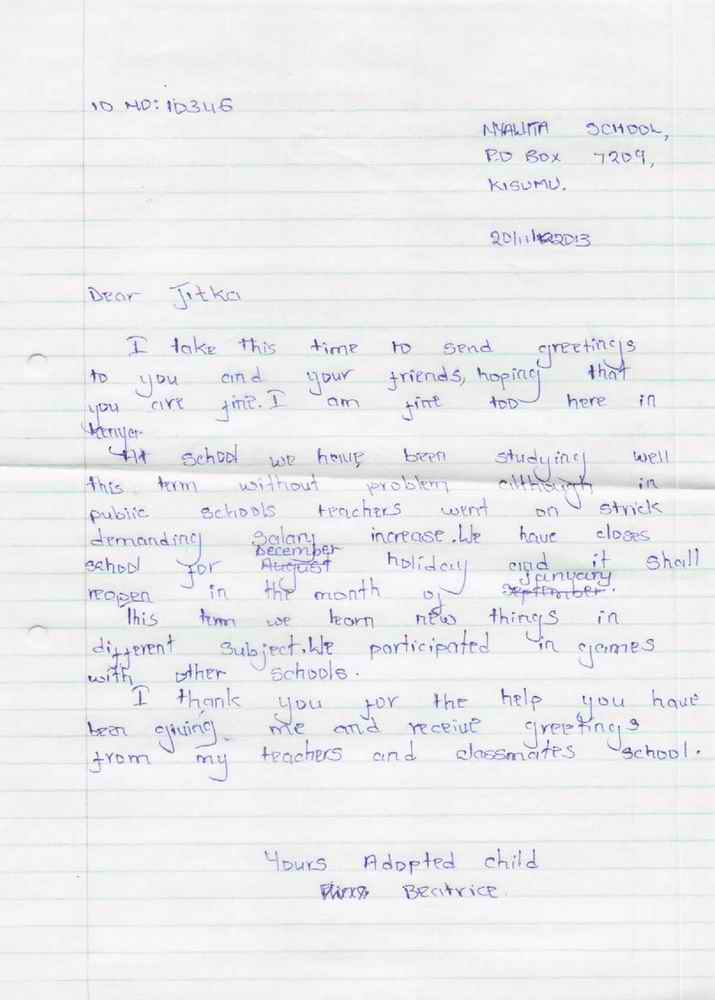 ID NO: ID346
NYAWITA SCHOOL,
P.O BOX 7209,
KISUMU.
20/11/2013
Dear Jitka
I take this time to send greetings
to you and your friends, hoping that
you are fine. I am fine too here in
Kenya.
At school we have been studying well
this term without problem although in
public schools teachers went on strick
demanding salary increase. We have closes
December
school for August holiday and it shall
Januyary
reopen in the month of September.
This term we learn new things in
different subject. We participated in games
with other schools.
I thank you for the help you have
been giving me and receive greetings
from my teachers and classmates school.
Yours Adopted child
Beatrice.